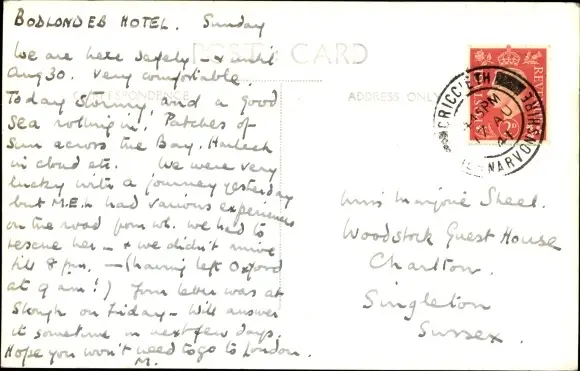 BODLONDEB HOTEL. Sunday
We are here safely – & until
Aug 30. Very comfortable.
Today stormy, and a good
sea rolling in. Patches of
sun across the Bay. Harlech
in cloud etc. We were very
lucky with a journey yesterday
but M.E.L had various experiences
on the road from wh. we had to
rescue her – & we didn't arrive
till 8 pm. – (having left Oxford
at 9 am!) Your letter was at
Slough on Friday – Will answer
it sometime in next few days.
Hope you won't need to go to London.
M.
POST CARD
CORRESPONDENCE
ADDRESS ONLY
CRICCIETH
45 PM
17 AU
CAERNARVONSHIRE
REVENUE
Miss Marjorie Sheel.
Woodstock Guest House
Charlton.
Singleton
Sussex.